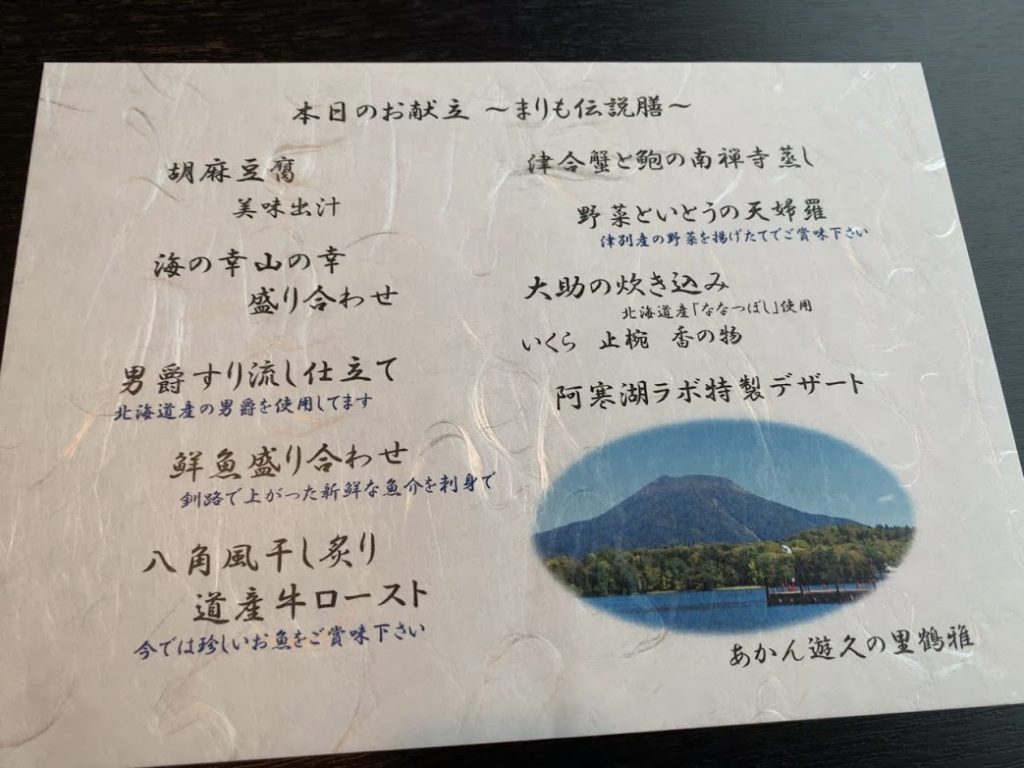 本日のお献立 ～まりも伝説膳～
胡麻豆腐
美味出汁
海の幸山の幸
盛り合わせ
男爵すり流し仕立て
北海道産の男爵を使用してます
鮮魚盛り合わせ
釧路で上がった新鮮な魚介を刺身で
八角風干し炙り
道産牛ロースト
今では珍しいお魚をご賞味下さい
津合蟹と鮑の南禅寺蒸し
野菜といとうの天婦羅
津別産の野菜を揚げたてでご賞味下さい
大助の炊き込み
北海道産「ななつぼし」使用
いくら 止椀 香の物
阿寒湖ラボ特製デザート
あかん遊久の里鶴雅